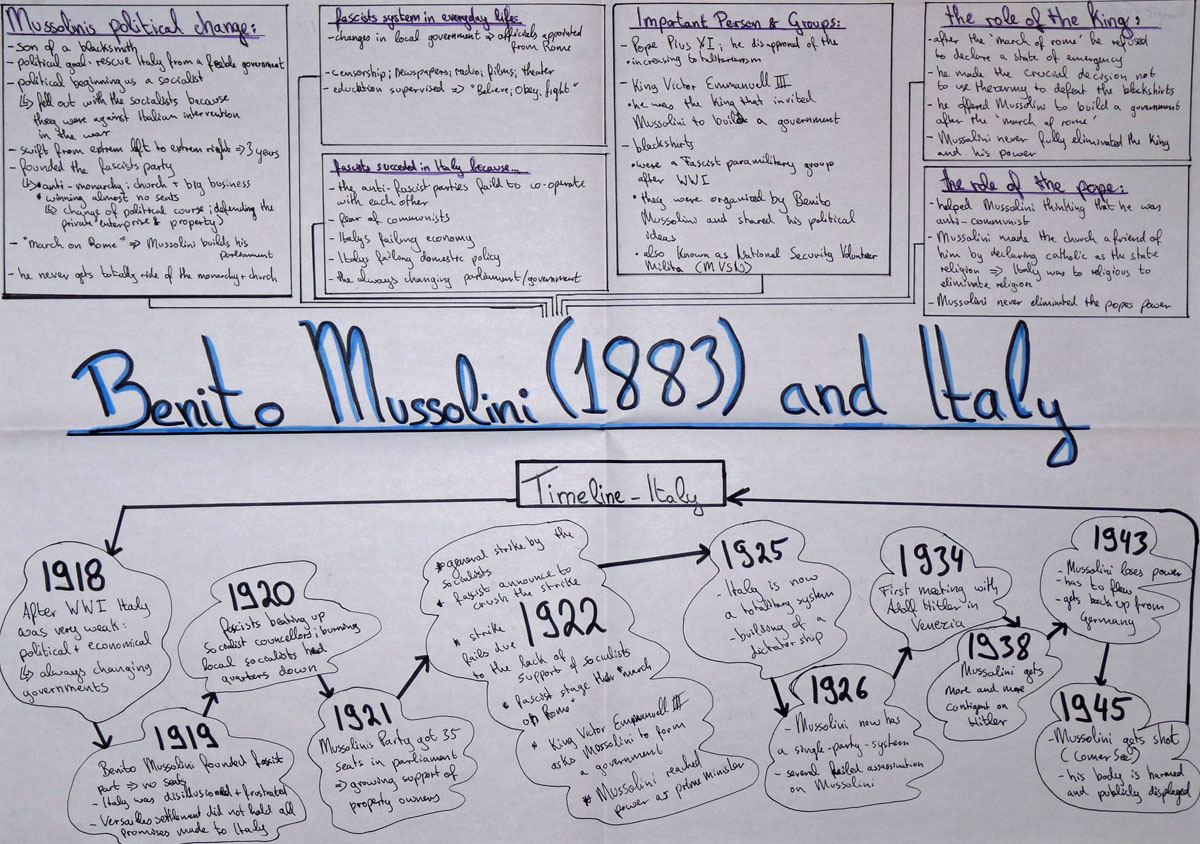 Mussolinis political change:
- son of a blacksmith
- political goal: rescue Italy from a feeble government
- political beginning as a socialist
↳ fell out with the socialists because
they were against Italian intervention
in the war
- swift from extrem left to extrem right ⇒ 3 years
- founded the fascists party
↳ • anti-monarchy; church + big business
• winning almost no seats
↳ change of political course; defending the
private enterprise & property)
- "March on Rome" ⇒ Mussolini builds his
parliament
- he never gets totally ride of the monarchy + church
fascists system in everyday life:
- changes in local government ⇒ officials appointed
from Rome
- censorship; newspapers; radio; films; theater
- education supervised ⇒ "Believe; Obey, fight"
fascists succeded in Italy because...
- the anti-fascist parties faild to co-operate
with each other
- fear of communists
- Italys failing economy
- Italys failing domestic policy
- the always changing parliament/government
Important Person & Groups:
- Pope Pius XI; he disaproved of the
• increasing totliterianism
- King Victor Emmanuell III
• he was the king that invited
Mussolini to build a government
- blackshirts
• were a Fascist paramilitary group
after WWI
• they were organized by Benito
Mussolini and shared his political
ideas
• also known as National Security Volunteer
Milita (MVSN)
the role of the King:
- after the 'march of rome' he refused
to declare a state of emergency
- he made the crucial decision not
to use the army to defeat the blackshirts
- he offered Mussolini to build a government
after the 'march of rome'
- Mussolini never fully eliminated the King
and his power
the role of the pope:
- helped Mussolini thinking that he was
anti-communist
- Mussolini made the church a friend of
him by declaring catholic as the state
religion ⇒ Italy was to religious to
eliminate religion
- Mussolini never eliminted the popes power
Benito Mussolini (1883) and Italy
Timeline - Italy
1918
After WWI Italy
was very weak:
political + economical
↳ always changing
governments
1919
Benito Mussolini founded fascist
part ⇒ no seats
- Italy was disillusioned + frustrated
- Versailles settlement did not hold all
promises made to Italy
1920
fascists beating up
socialist councellors; burning
local socialists head
quarters down
1921
Mussolinis Party got 35
seats in parliament
⇒ growing support of
property owners
* general strike by the
socialists
* fascist announce to
crush the strike
1922
* strike
fails due
to the lack of
support of socialists
* fascist stage their "march
on Rome"
* King Victor Emmanuell III
asks Mussolini to form
a government
* Mussolini reached
power as prime minister
1925
- Italy is now
a totalitary system
- building of a
dictatorship
1926
- Mussolini now has
a single-party-system
- several failed assassination
on Mussolini
1934
First meeting with
Adolf Hitler in
Venezia
1938
Mussolini gets
more and more
contigent on
Hitler
1943
- Mussolini loses power
- has to flew
- gets back up from
Germany
1945
- Mussolini gets shot
(Comer See)
- his body is harmed
and publicly displayed